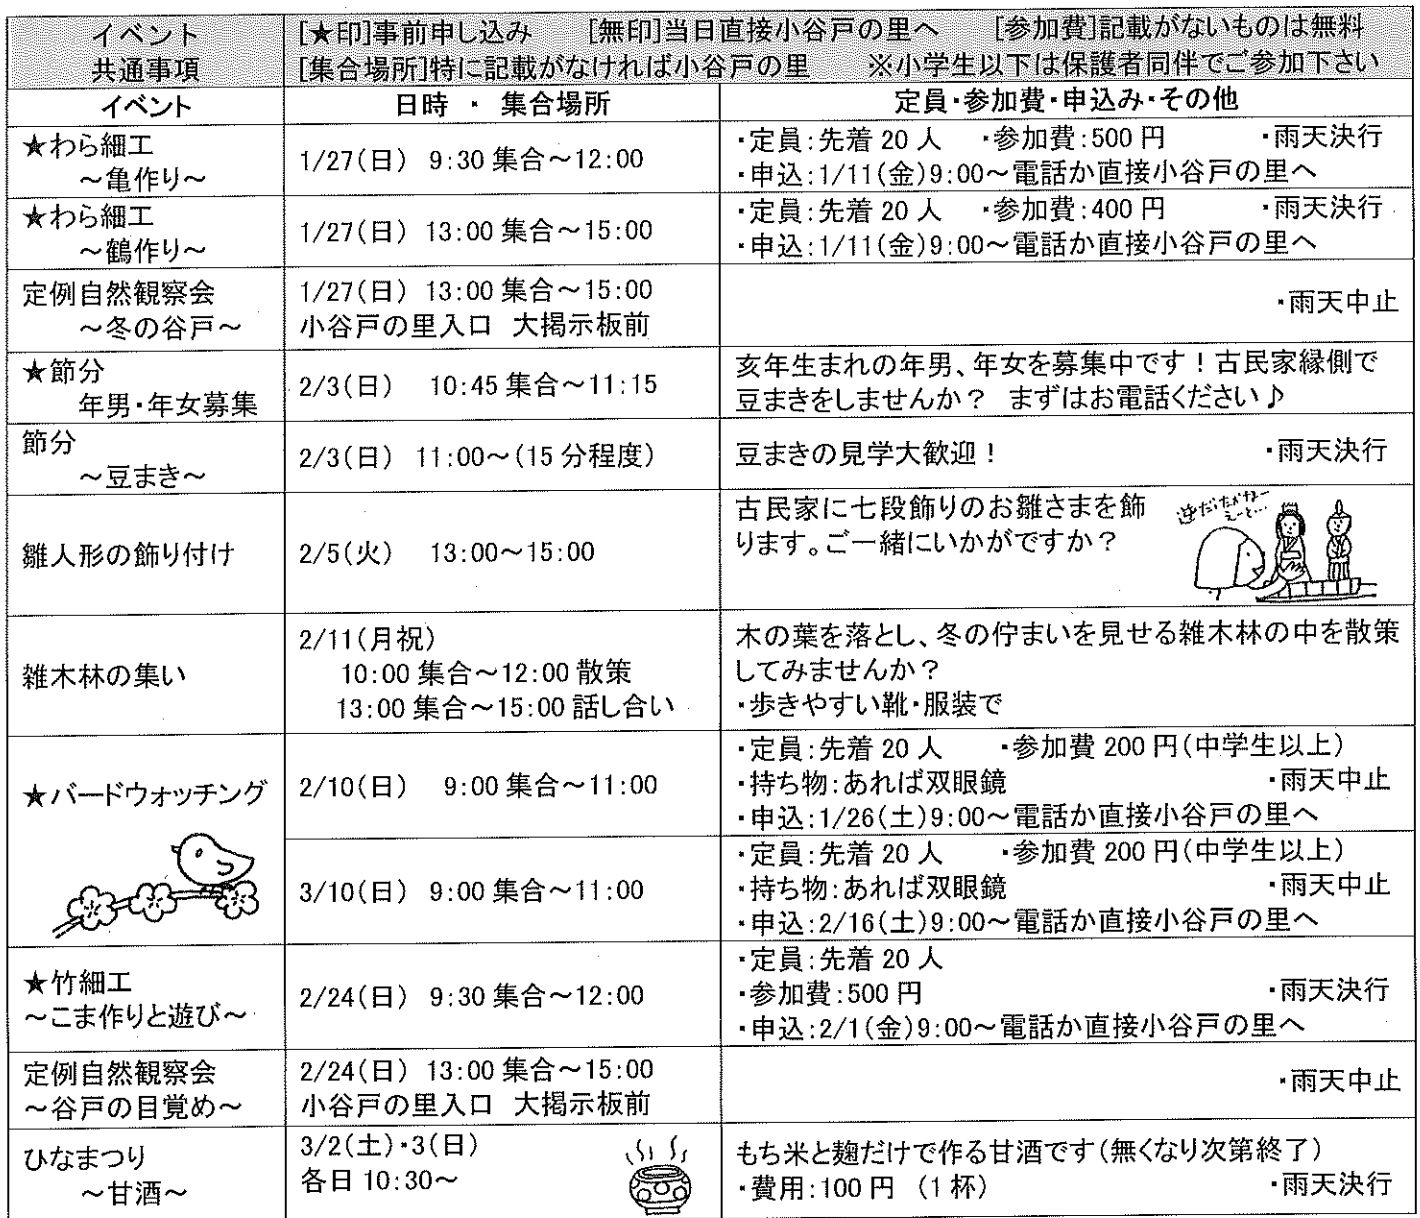 イベント
共通事項
[★印]事前申し込み　[無印]当日直接小谷戸の里へ　[参加費]記載がないものは無料
[集合場所]特に記載がなければ小谷戸の里　※小学生以下は保護者同伴でご参加下さい
イベント　日時 ・ 集合場所　定員・参加費・申込み・その他
★わら細工
～亀作り～
1/27(日) 9:30 集合～12:00
・定員：先着 20 人　・参加費：500 円　・雨天決行
・申込：1/11(金)9:00～電話か直接小谷戸の里へ
★わら細工
～鶴作り～
1/27(日) 13:00 集合～15:00
・定員：先着 20 人　・参加費：400 円　・雨天決行
・申込：1/11(金)9:00～電話か直接小谷戸の里へ
定例自然観察会
～冬の谷戸～
1/27(日) 13:00 集合～15:00
小谷戸の里入口　大掲示板前
・雨天中止
★節分
年男・年女募集
2/3(日)　10:45 集合～11:15
亥年生まれの年男、年女を募集中です！古民家縁側で
豆まきをしませんか？　まずはお電話ください♪
節分
～豆まき～
2/3(日)　11:00～(15 分程度)
豆まきの見学大歓迎！　・雨天決行
雛人形の飾り付け
2/5(火)　13:00～15:00
古民家に七段飾りのお雛さまを飾
ります。ご一緒にいかがですか？
逆だったかな―
えーと…
雑木林の集い
2/11(月祝)
10:00 集合～12:00 散策
13:00 集合～15:00 話し合い
木の葉を落とし、冬の佇まいを見せる雑木林の中を散策
してみませんか？
・歩きやすい靴・服装で
★バードウォッチング
2/10(日)　9:00 集合～11:00
・定員：先着 20 人　・参加費 200 円(中学生以上)
・持ち物：あれば双眼鏡　・雨天中止
・申込：1/26(土)9:00～電話か直接小谷戸の里へ
3/10(日) 9:00 集合～11:00
・定員：先着 20 人　・参加費 200 円(中学生以上)
・持ち物：あれば双眼鏡　・雨天中止
・申込：2/16(土)9:00～電話か直接小谷戸の里へ
★竹細工
～こま作りと遊び～
2/24(日) 9:30 集合～12:00
・定員：先着 20 人
・参加費：500 円　・雨天決行
・申込：2/1(金)9:00～電話か直接小谷戸の里へ
定例自然観察会
～谷戸の目覚め～
2/24(日) 13:00 集合～15:00
小谷戸の里入口　大掲示板前
・雨天中止
ひなまつり
～甘酒～
3/2(土)・3(日)
各日 10:30～
もち米と麹だけで作る甘酒です(無くなり次第終了)
・費用：100 円　(1 杯)　・雨天決行